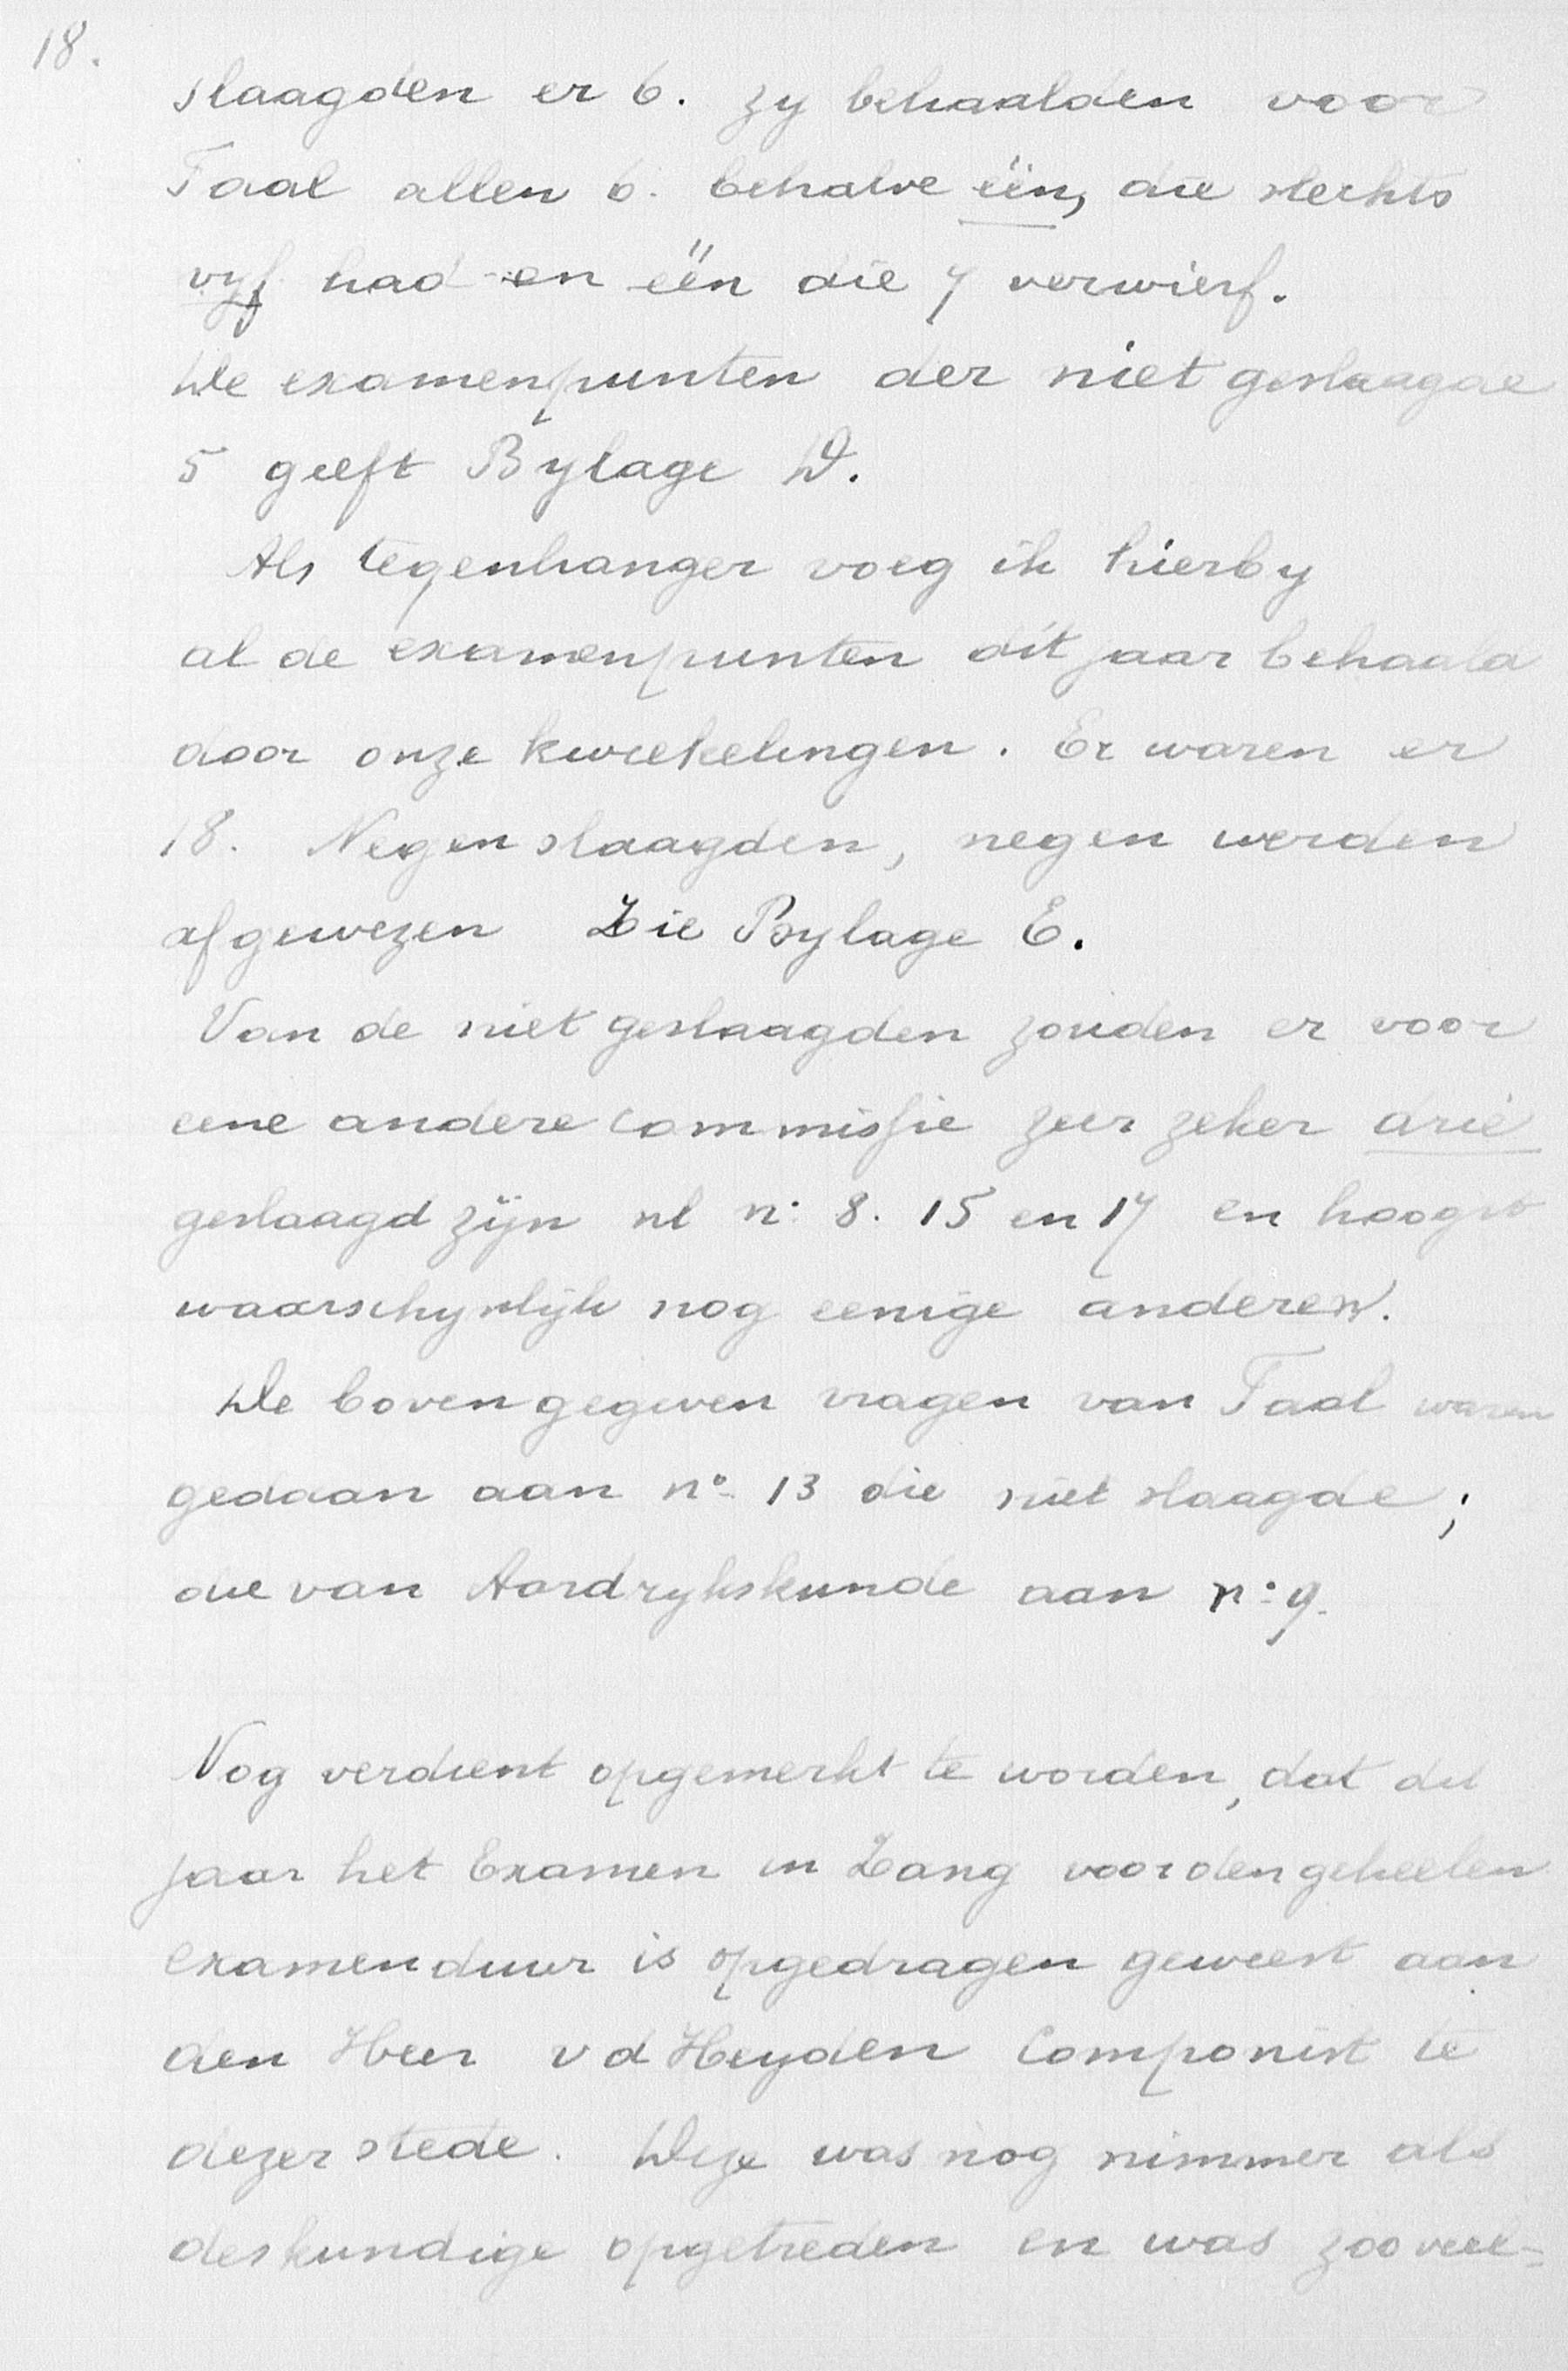 18.
slaagden er 6. zy behaalden voor
Taal allen 6. behalve één, die slechts
vyf had en één die 7 verwierf.
De examenpunten der niet geslaagde
5 geeft Bylage D.
Als tegenhanger voeg ik hierby
al de examenpunten dit jaar behaald
door onze kweekelingen. Er waren er
18. Negen slaagden, negen werden
afgewezen Zie Bylage E.
Van de niet geslaagden zouden er voor
eene andere commissie zeer zeker drie
geslaagd zijn nl no 8. 15 en 17 en hoogst
waarschynlijk nog eenige anderen.
De boven gegeven vragen van Taal waren
gedaan aan no 13 die niet slaagde;
die van Aardrykskunde aan no 9.
Nog verdient opgemerkt te worden, dat dit
jaar het Examen in Zang voor den geheelen
examenduur is opgedragen geweest aan
den Heer v d Heyden Componist te
dezer stede. Deze was nog nimmer als
deskundige opgetreden en was zooveel=